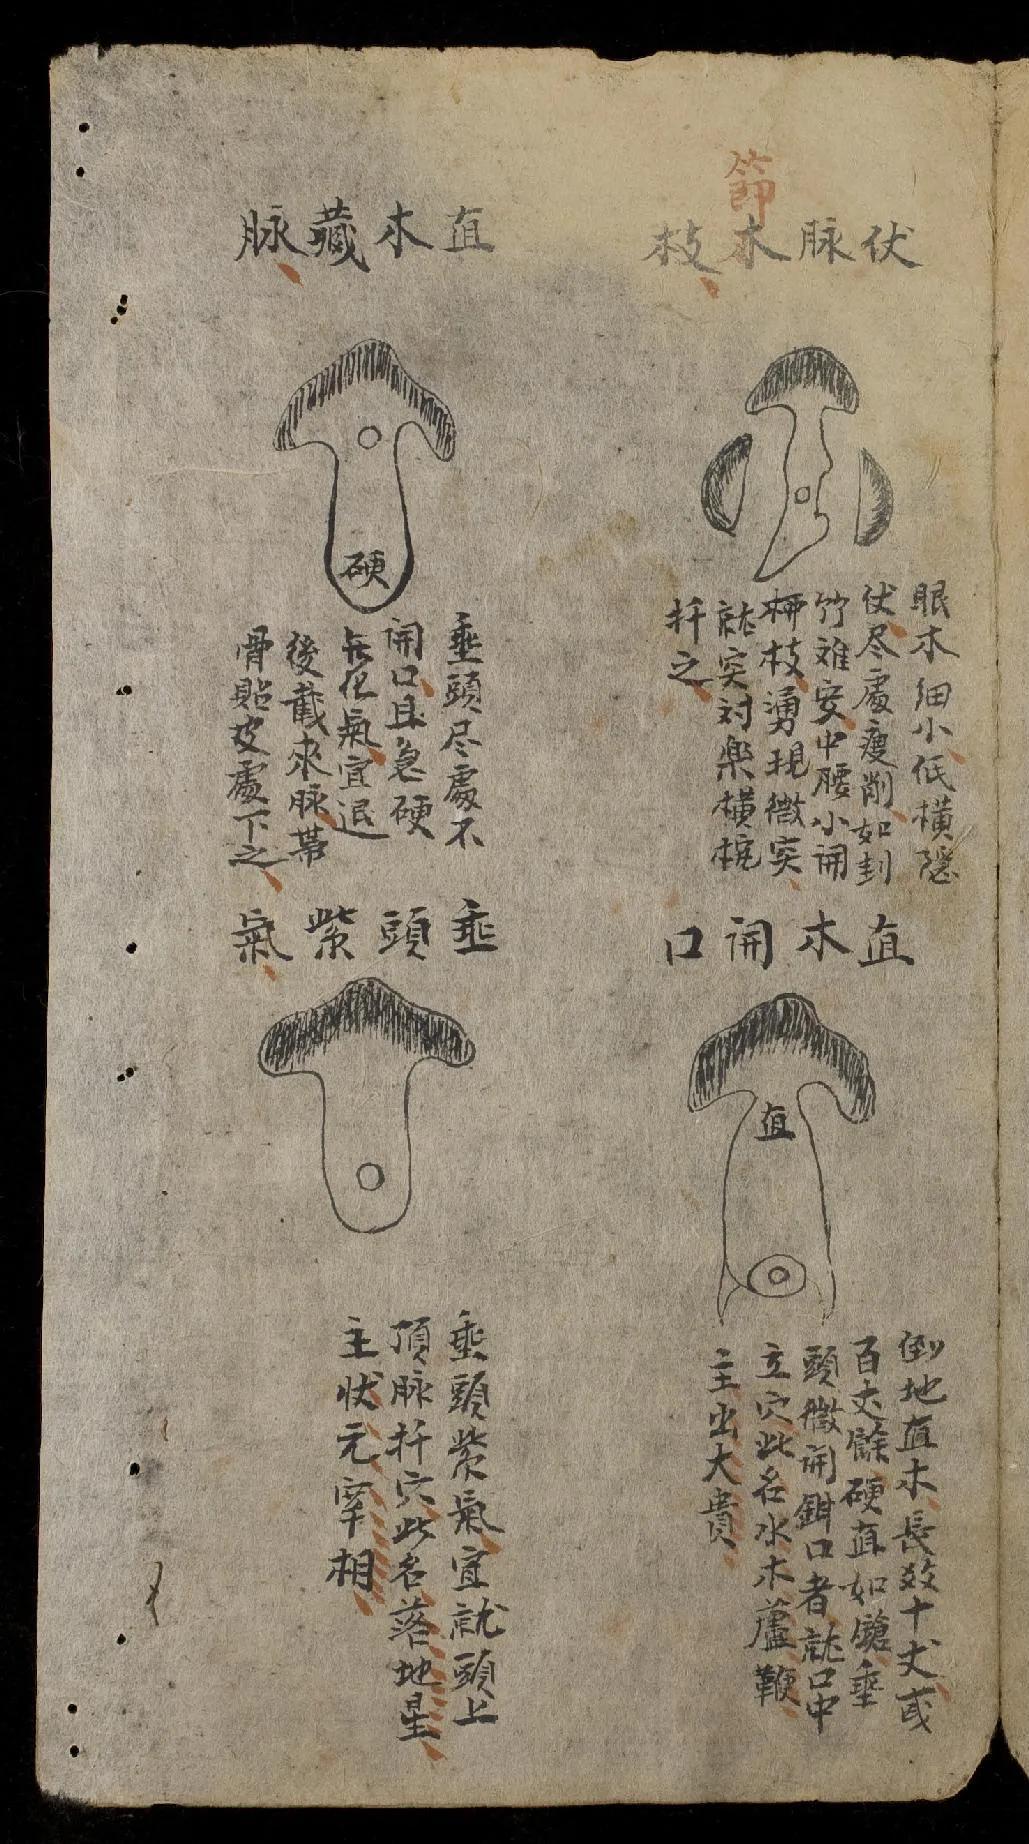 節
伏脉木枝
眠木細小低橫隱
伏尽處瘦削如刲
竹难安中腰小開
枅枝湧現微突
就突对楽橫枕
扦之
直木開口
直
倒地直木長数十丈或
百丈餘硬直如鎗垂
頭微開鉗口者就口中
立穴此名水木蘆鞭
主出大貴
直木藏脉
硬
垂頭尽處不
開口且急硬
無化氣宜退
後截來脉帯
骨貼皮處下之
垂頭紫氣
垂頭紫氣宜就頭上
頂脉扦穴此名落地星
主状元宰相